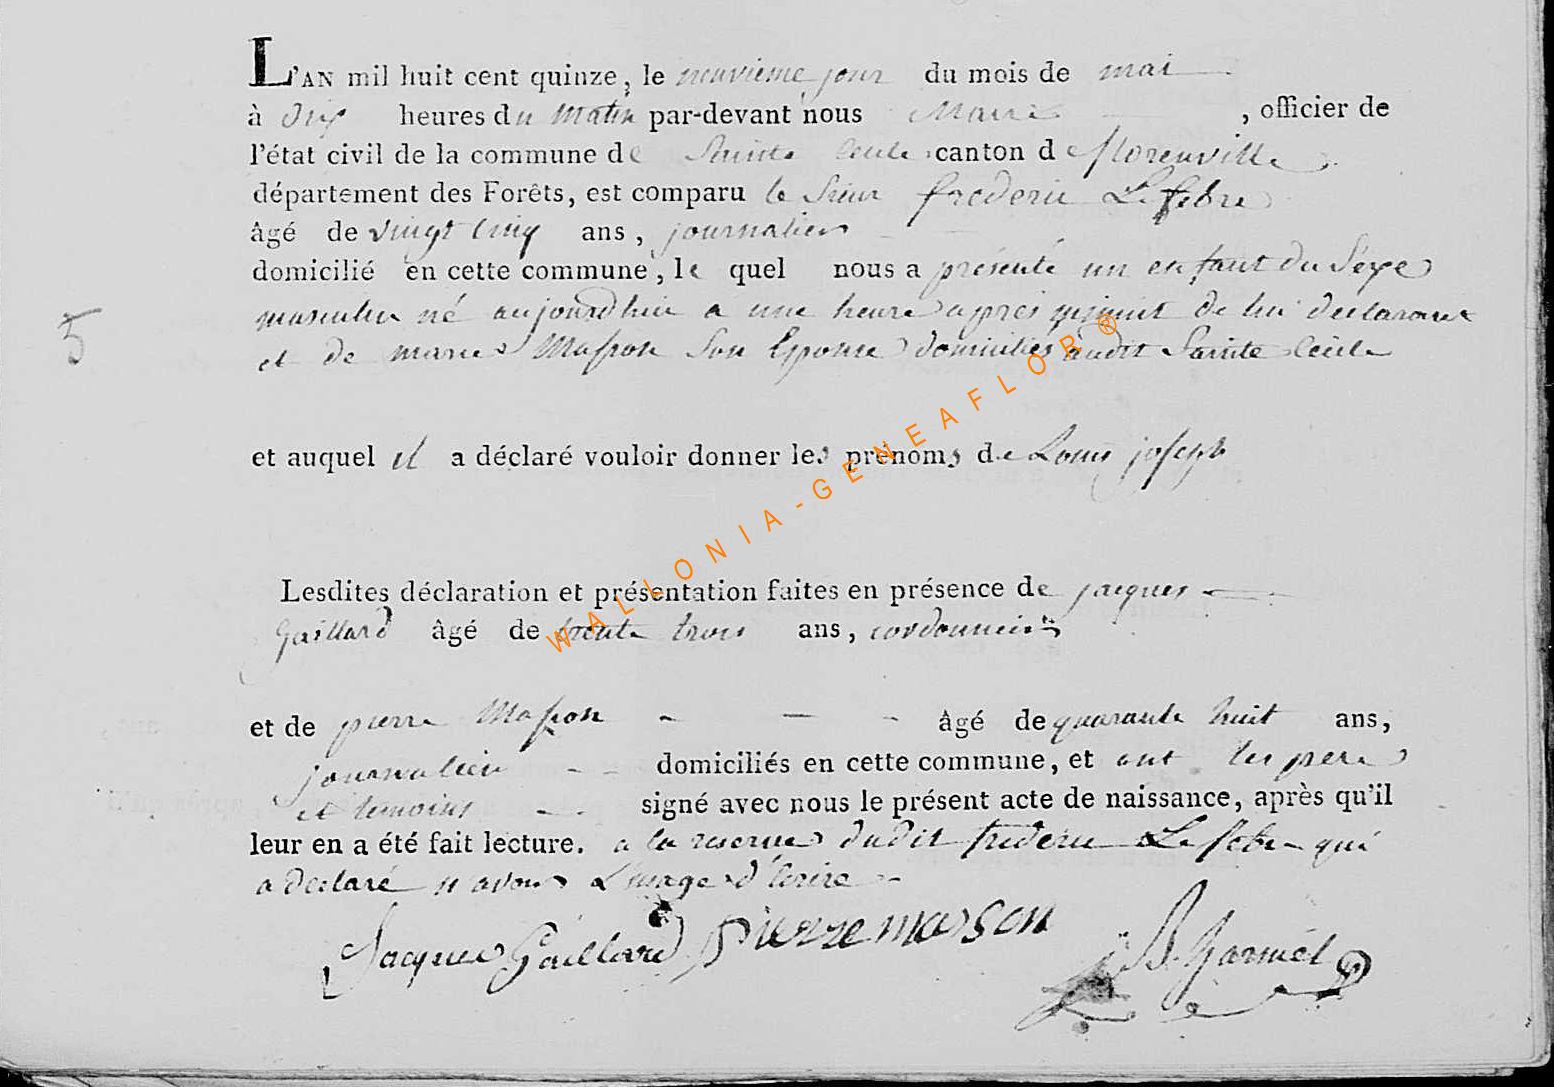 L'AN mil huit cent quinze, le neuvieme jour du mois de mai
à dix heures du matin par-devant nous Maire , officier de
l'état civil de la commune de Sainte Cecile canton de florenville
département des Forêts, est comparu le Sieur frederic Lefebre
âgé de vingt cinq ans, journalier
domicilié en cette commune, le quel nous a présenté un enfant du Sexe
masculin né aujourdhui a une heure apres minuit de lui declarant
et de marie Masson Son Epouse domiciliés audit Sainte Cecile
5
et auquel il a déclaré vouloir donner les prénoms de Louis joseph
Lesdites déclaration et présentation faites en présence de jacques
Gaillard âgé de trente trois ans, cordonnier
et de pierre Masson âgé de quarante huit ans,
journalier domiciliés en cette commune, et ont les pere
et temoins signé avec nous le présent acte de naissance, après qu'il
leur en a été fait lecture. a la reserve dudit frederic Lefebre qui
a declaré n'avoir L'usage d'Ecrire
Jacques Gaillard pierre masson
WALLONIA-GENEAFLOR®